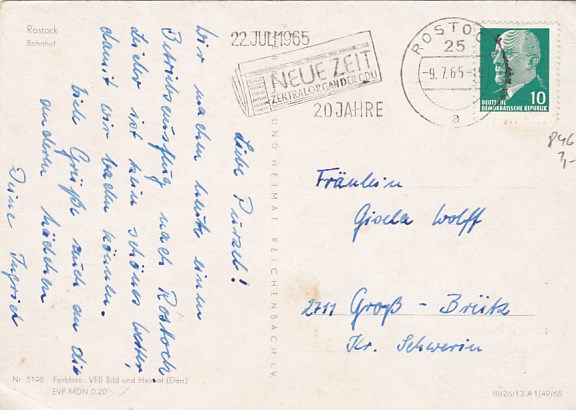 Rostock
Bahnhof
Liebe Pursel!
Wir machen heute einen
Betriebsausflug nach Rostock
Leider ist kein schönes Wetter,
damit wir baden können.
Viele Grüße auch an die
anderen Mädchen
Deine Ingrid
Nr. 5198 Farbfoto: VEB Bild und Heimat (Derr)
EVP MDN 0.20
UND HEIMAT REICHENBACH I. V.
22. JULI 1965
NEUE ZEIT
ZENTRALORGAN DER CDU
20 JAHRE
ROSTOCK
25
-9.7.65-
a
10
DEUTSCHE
DEMOKRATISCHE REPUBLIK
846
7,-
Fräulein
Gisela Wolff
2711 Groß-Brütz
Kr. Schwerin
III/26/13 A 1/49/65